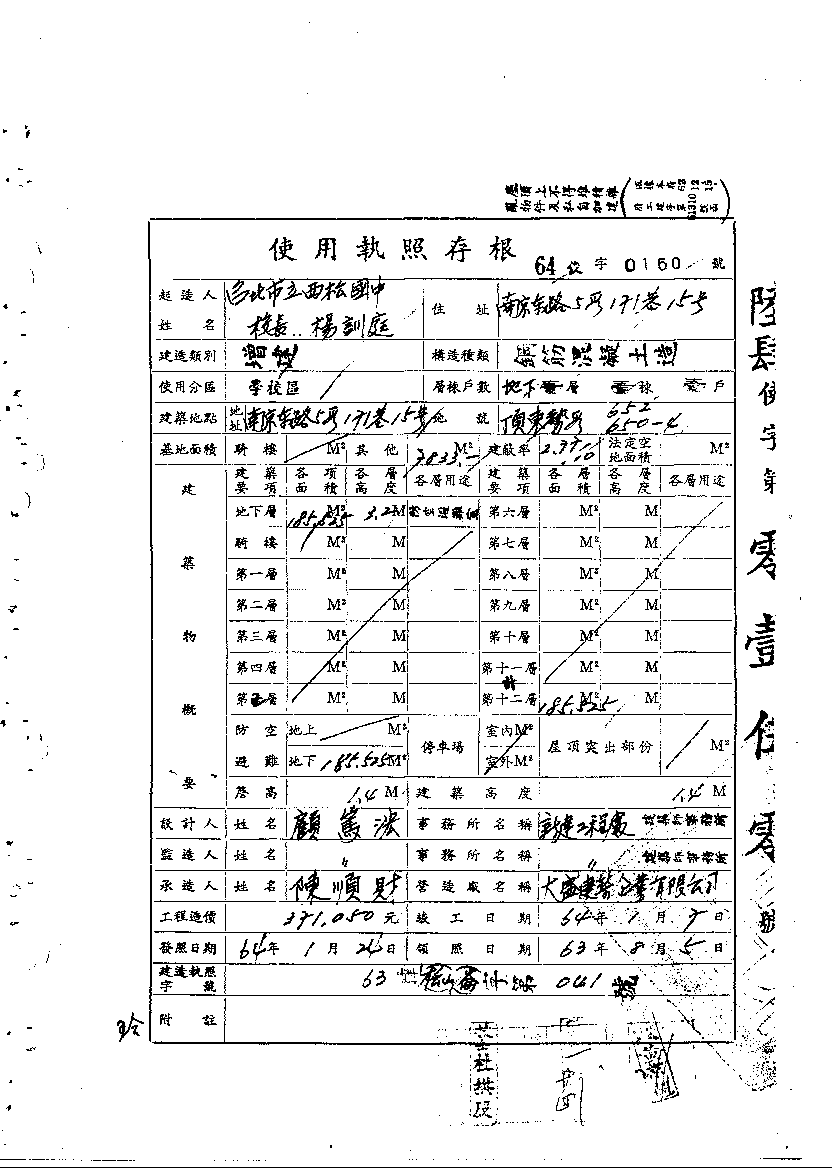 屋頂上不得堆積雜
物件及私自加建
使用執照存根
64 使字 0150 號
起造人姓名 台北市立西松國中 校長 楊訓庭 住址 南京東路5段171巷15号
建造類別 增建 構造種類 鋼筋混凝土造
使用分區 學校區 層棟戶數 地下壹層 壹棟 壹戶
建築地點 地址 南京東路5段171巷15号 地號 頂東勢段 652 650-4
基地面積 騎樓 M² 其他 M² 建蔽率 法定空地面積 M²
建築物概要
建築要項 各項面積 各層高度 各層用途 建築要項 各層面積 各層高度 各層用途
地下層 185.525 M² 3.2M 第六層 M² M
騎樓 M² M 第七層 M² M
第一層 M² M 第八層 M² M
第二層 M² M 第九層 M² M
第三層 M² M 第十層 M² M
第四層 M² M 第十一層 M² M
第五層 M² M 計 第十二層 185.525 M² M
防空避難 地上 M² 停車場 室內M² 屋頂突出部份 M²
地下 185.525M² 室外M²
簷高 1.4 M 建築高度 1.4 M
設計人 姓名 事務所名稱 建築師事務所
監造人 姓名 〃 事務所名稱 〃 建築師事務所
承造人 姓名 陳順財 營造廠名稱 大盛建築企業有限公司
工程造價 371,050 元 竣工日期 64年1月7日
發照日期 64年1月24日 領照日期 63年8月5日
建造執照字號 63 字第 041 號
附註
陸肆使字第零壹伍零號